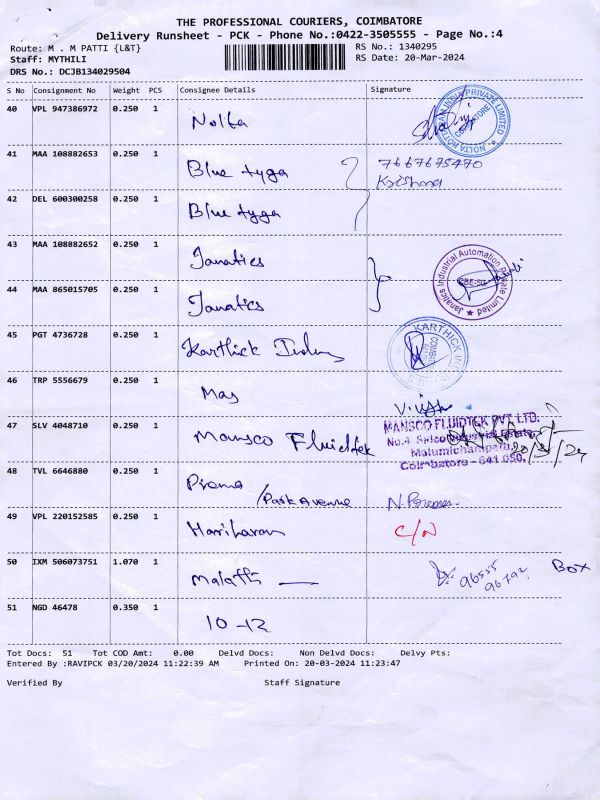 THE PROFESSIONAL COURIERS, COIMBATORE
Delivery Runsheet - PCK - Phone No.:0422-3505555 - Page No.:4
Route: M . M PATTI {L&T} RS No.: 1340295
Staff: MYTHILI RS Date: 20-Mar-2024
DRS No.: DCJB134029504
S No Consignment No Weight PCS Consignee Details Signature
40 VPL 947386972 0.250 1 Nolta
NOLTA INDIA PRIVATE LIMITED COIMBATORE
41 MAA 108882653 0.250 1 Blue tyga 7667675470
Krishna
42 DEL 600300258 0.250 1 Blue tyga
43 MAA 108882652 0.250 1 Janatics
Janatics Industrial Automation Private Limited
44 MAA 865015705 0.250 1 Janatics
45 PGT 4736728 0.250 1 Karthick
KARTHICK
46 TRP 5556679 0.250 1 Mas
47 SLV 4048710 0.250 1 Mansco Fluidtek
MANSCO FLUIDTEK PVT. LTD.
No.4 Industrial Estate,
Malumichampatti,
Coimbatore - 641 050.
20/3/24
48 TVL 6646880 0.250 1
/Park Avenue
49 VPL 220152585 0.250 1 Hariharan C/N
50 IXM 506073751 1.070 1 96555 Box
96792
51 NGD 46478 0.350 1 10-12
Tot Docs: 51 Tot COD Amt: 0.00 Delvd Docs: Non Delvd Docs: Delvy Pts:
Entered By :RAVIPCK 03/20/2024 11:22:39 AM Printed On: 20-03-2024 11:23:47
Verified By Staff Signature